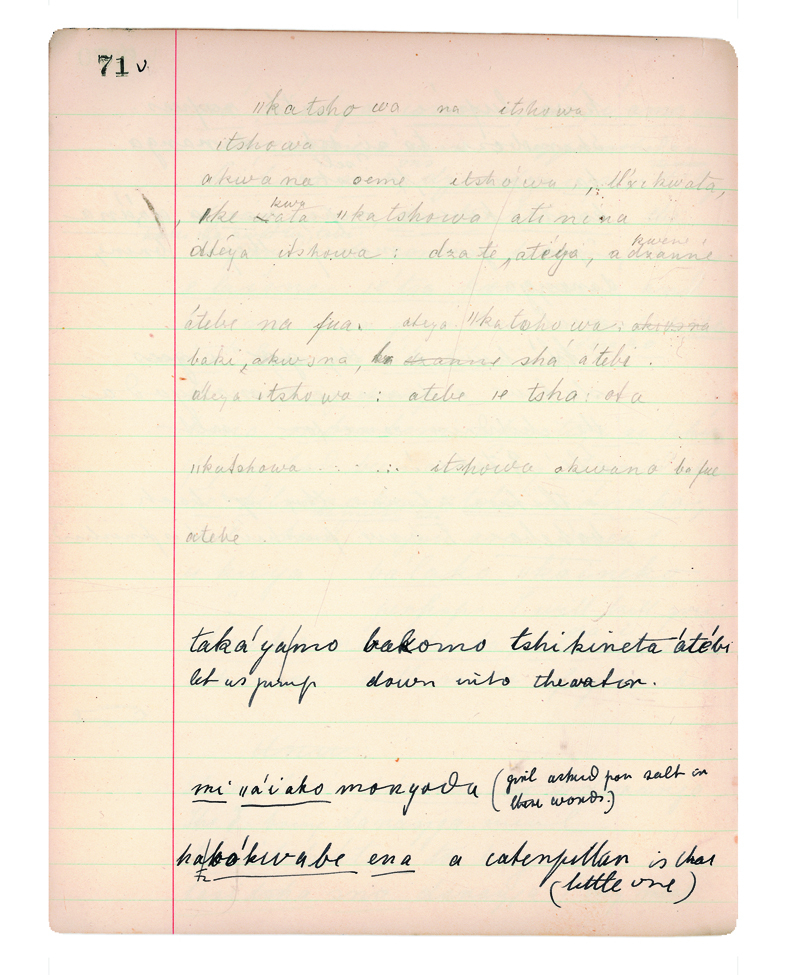 71v
"katshowa na itshowa
itshowa
akwana oeme itshówa,
kwa
ike "katshowa atinina
dtéya itshowa : dzate, atéya, a dzanne
kwene
átebe na fua. ateya "katshowa:
baki, akwona, dzanne shá átebe.
ateya itshowa : atebe ie tsha: ota
"katshowa ...... itshowa akwano ba fue
atebe.
taká'ya/mo bakomo tshikineta átébi
let us jump down into the water.
mi "á'i ako monyoda (girl asked for salt in
these words.)
ha/bókwabe ena a caterpillar is that
(little one)